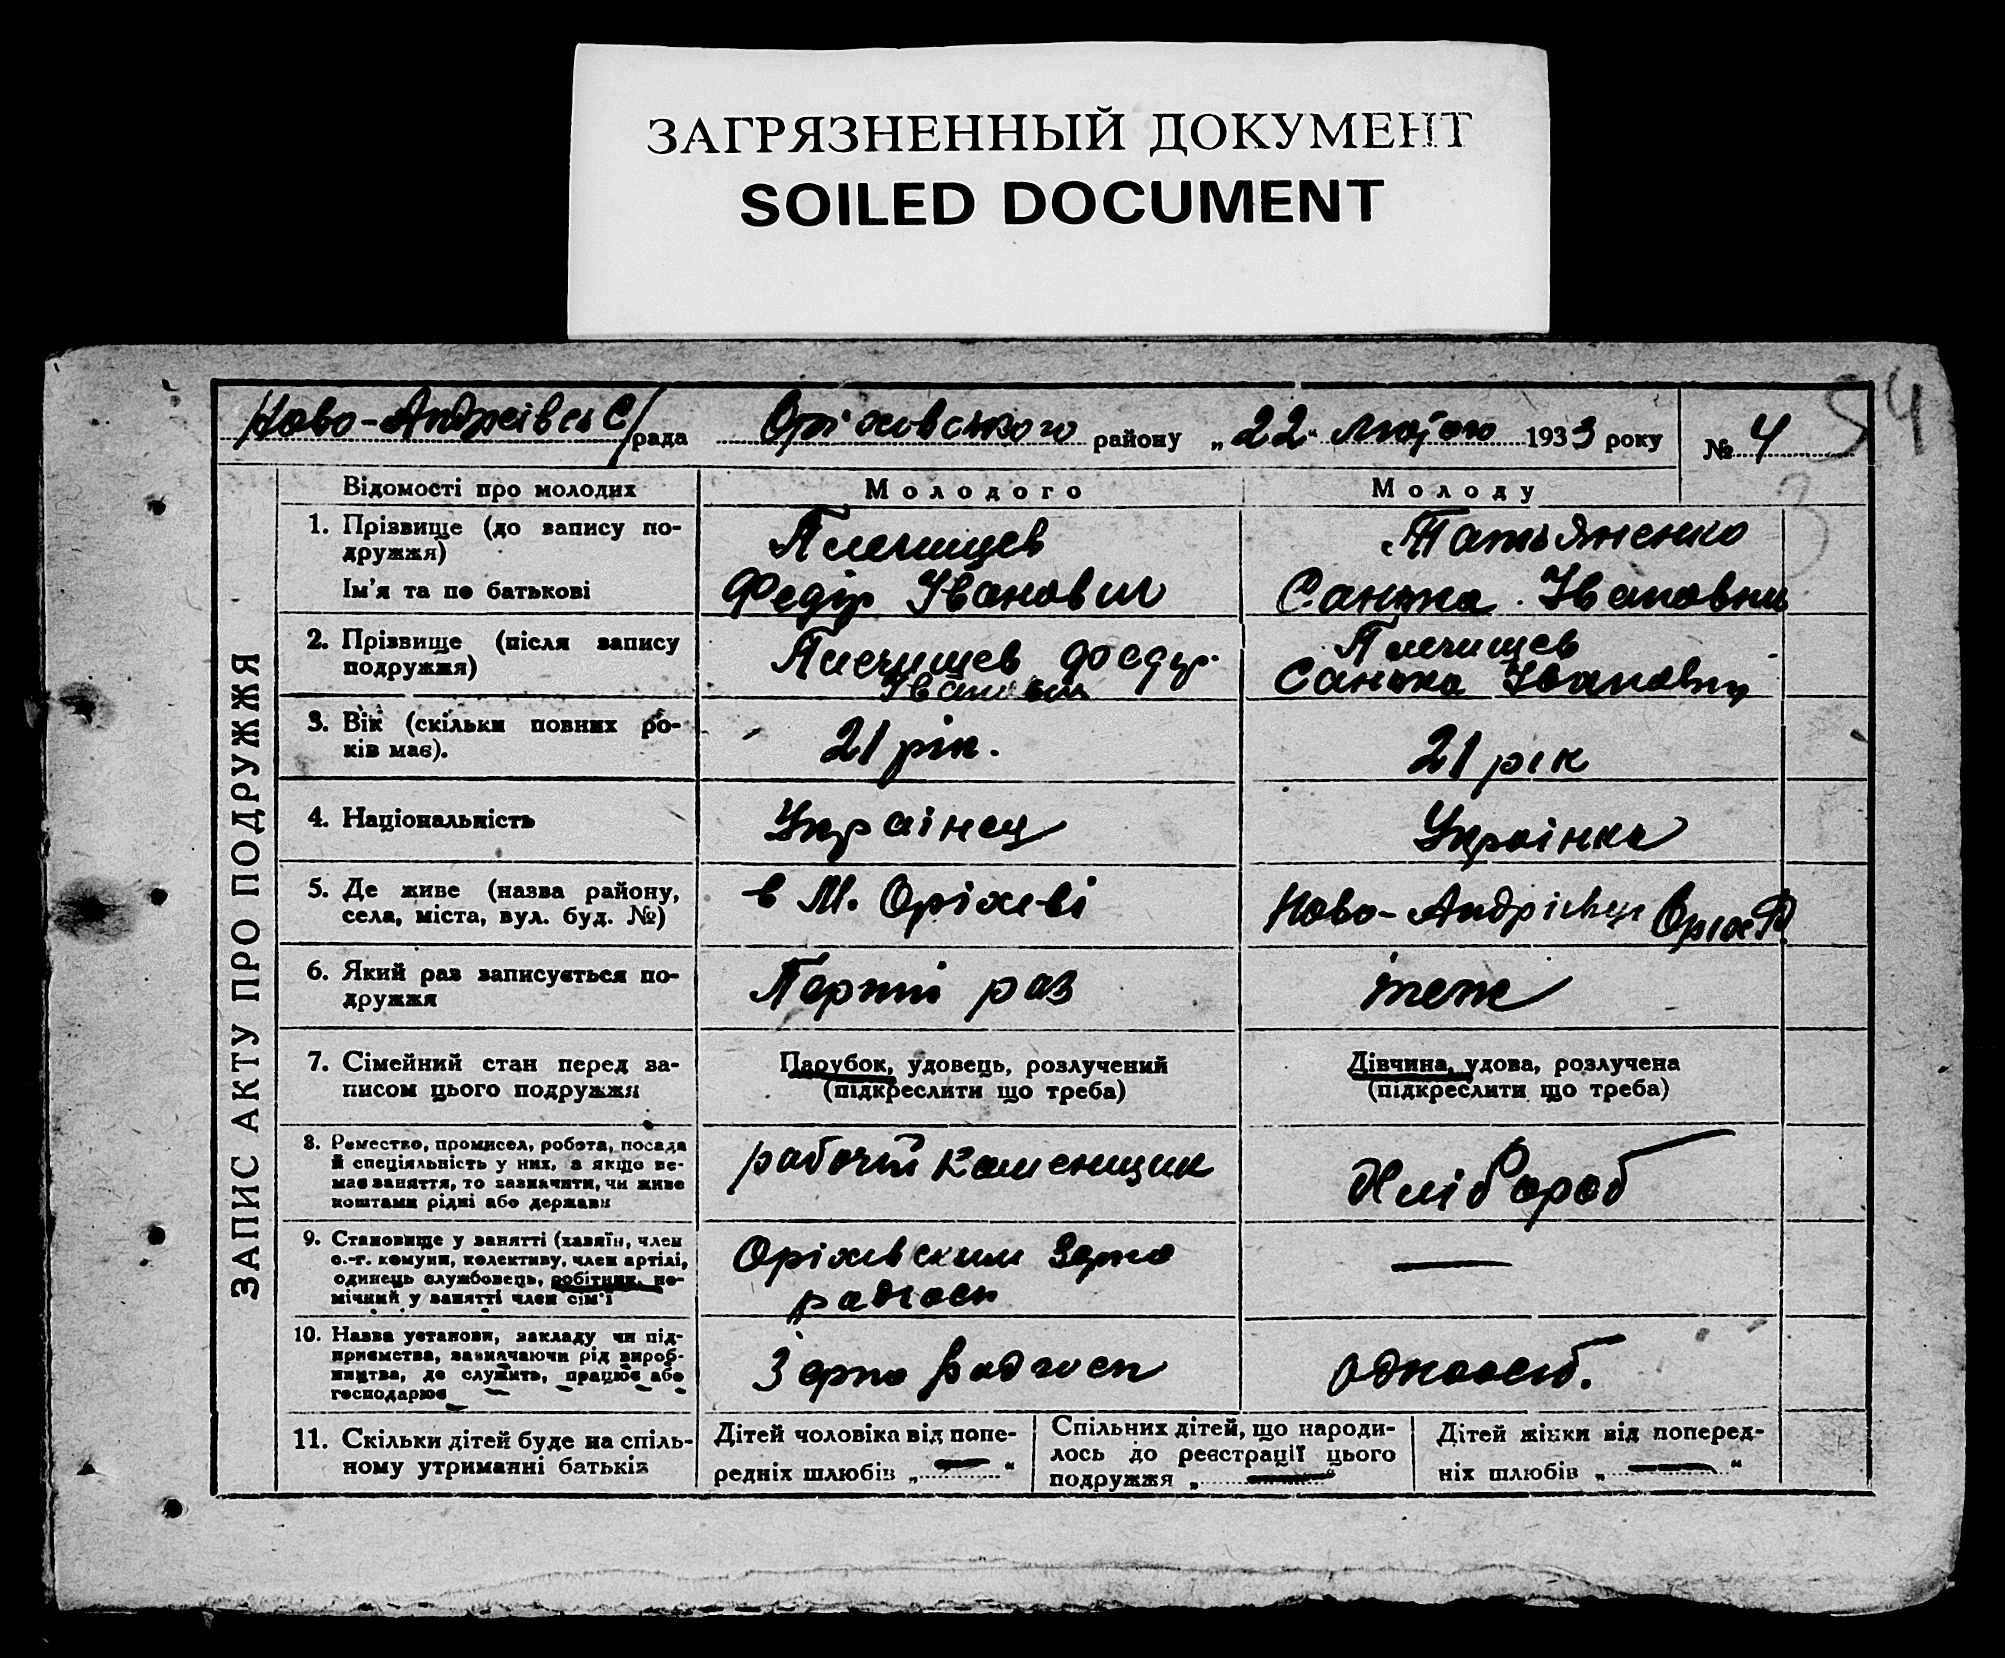 ЗАГРЯЗНЕННЫЙ ДОКУМЕНТ
SOILED DOCUMENT
54
Ново-Андреївсь С/рада Оріховського району „22“ лютого 1933 року № 4
ЗАПИС АКТУ ПРО ПОДРУЖЖЯ
Відомості про молодих Молодого Молоду
1. Прізвище (до запису по-
дружжя)
Плечищев Татьяненко
Ім'я та по батькові
Федір Іванович Санька Івановна
2. Прізвище (після запису
подружжя)
Плечищев Федір
Іванович
Плечищев
Санька Івановна
3. Вік (скільки повних ро-
ків має).
21 рік. 21 рік
4. Національність Українец Українка
5. Де живе (назва району,
села, міста, вул. буд. №)
в М. Оріхеві Ново-Андрієвці Оріх Р
6. Який раз записується по-
дружжя
Перший раз теж
7. Сімейний стан перед за-
писом цього подружжя
Парубок, удовець, розлучений
(підкреслити що треба)
Дівчина, удова, розлучена
(підкреслити що треба)
8. Ремество, промисел, робота, посада
й спеціяльність у них, а якщо не-
має заняття, то зазначити, чи живе
коштами рідні або держави
рабочій каменщик Хлібороб
9. Становище у занятті (хазяїн, член
с.-г. комуни, колективу, член артілі,
одинець службовець, робітник, по-
мічний у занятті член сім'ї
Оріхевським Зерно
радгосп
—
10. Назва установи, закладу чи під-
приємства, зазначаючи рід вироб-
ництва, де служить, працює або
господарює
Зерно Радгосп одноосіб.
11. Скільки дітей буде на спіль-
ному утриманні батьків
Дітей чоловіка від попе-
редніх шлюбів „—“
Спільних дітей, що народи-
лось до реєстрації цього
подружжя „—“
Дітей жінки від поперед-
ніх шлюбів „—“